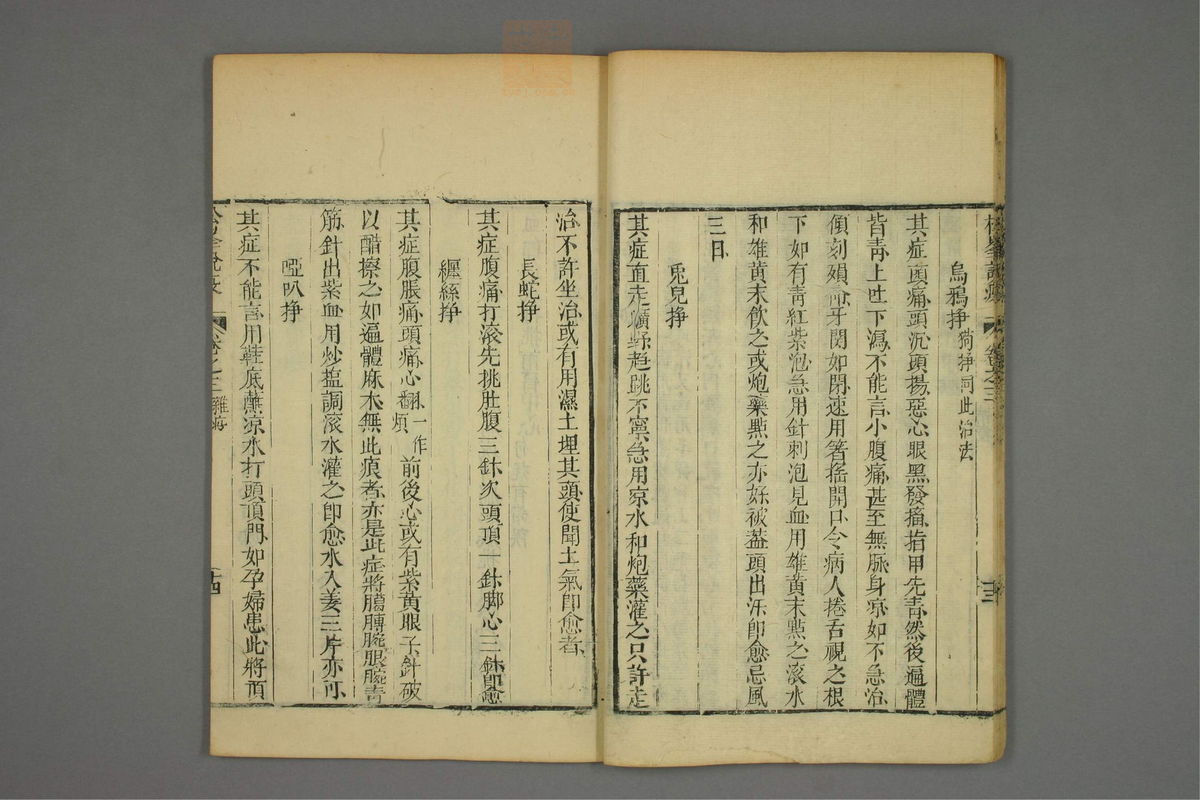 烏鴉掙 狗掙同此治法
其症齒痛頭沉頭揚惡心眼黑發搐指甲先青然後遍體
皆青上吐下瀉不能言小腹痛甚至無脉身凉如不急治
傾刻殞命牙関如閉速用箸搖開口令病人捲舌視之根
下如有青紅紫泡急用針刺泡見血用雄黃末點之滚水
和雄黃末飲之或炮藥點之亦好被蓋頭出汗即愈忌風
三日
兎兒掙
其症直走曠野趒跳不寧急用凉水和炮藥灌之只許走
治不許坐治或有用濕土埋其頭使聞土氣即愈者
長蛇掙
其症腹痛打滚先挑肚腹三針次頭頂一針脚心三針即愈
纒絲掙
其症腹脹痛頭痛心翻一作煩前後心或有紫黃眼子針破
以醋擦之如遍體麻木無此痕者亦是此症將胳膊腕腿腕青
筋針出紫血用炒鹽調滚水灌之即愈水入姜三片亦可
啞叭掙
其症不能言用鞋底蘸凉水打頭頂門如孕婦患此將頂
卷之三 雜
十四